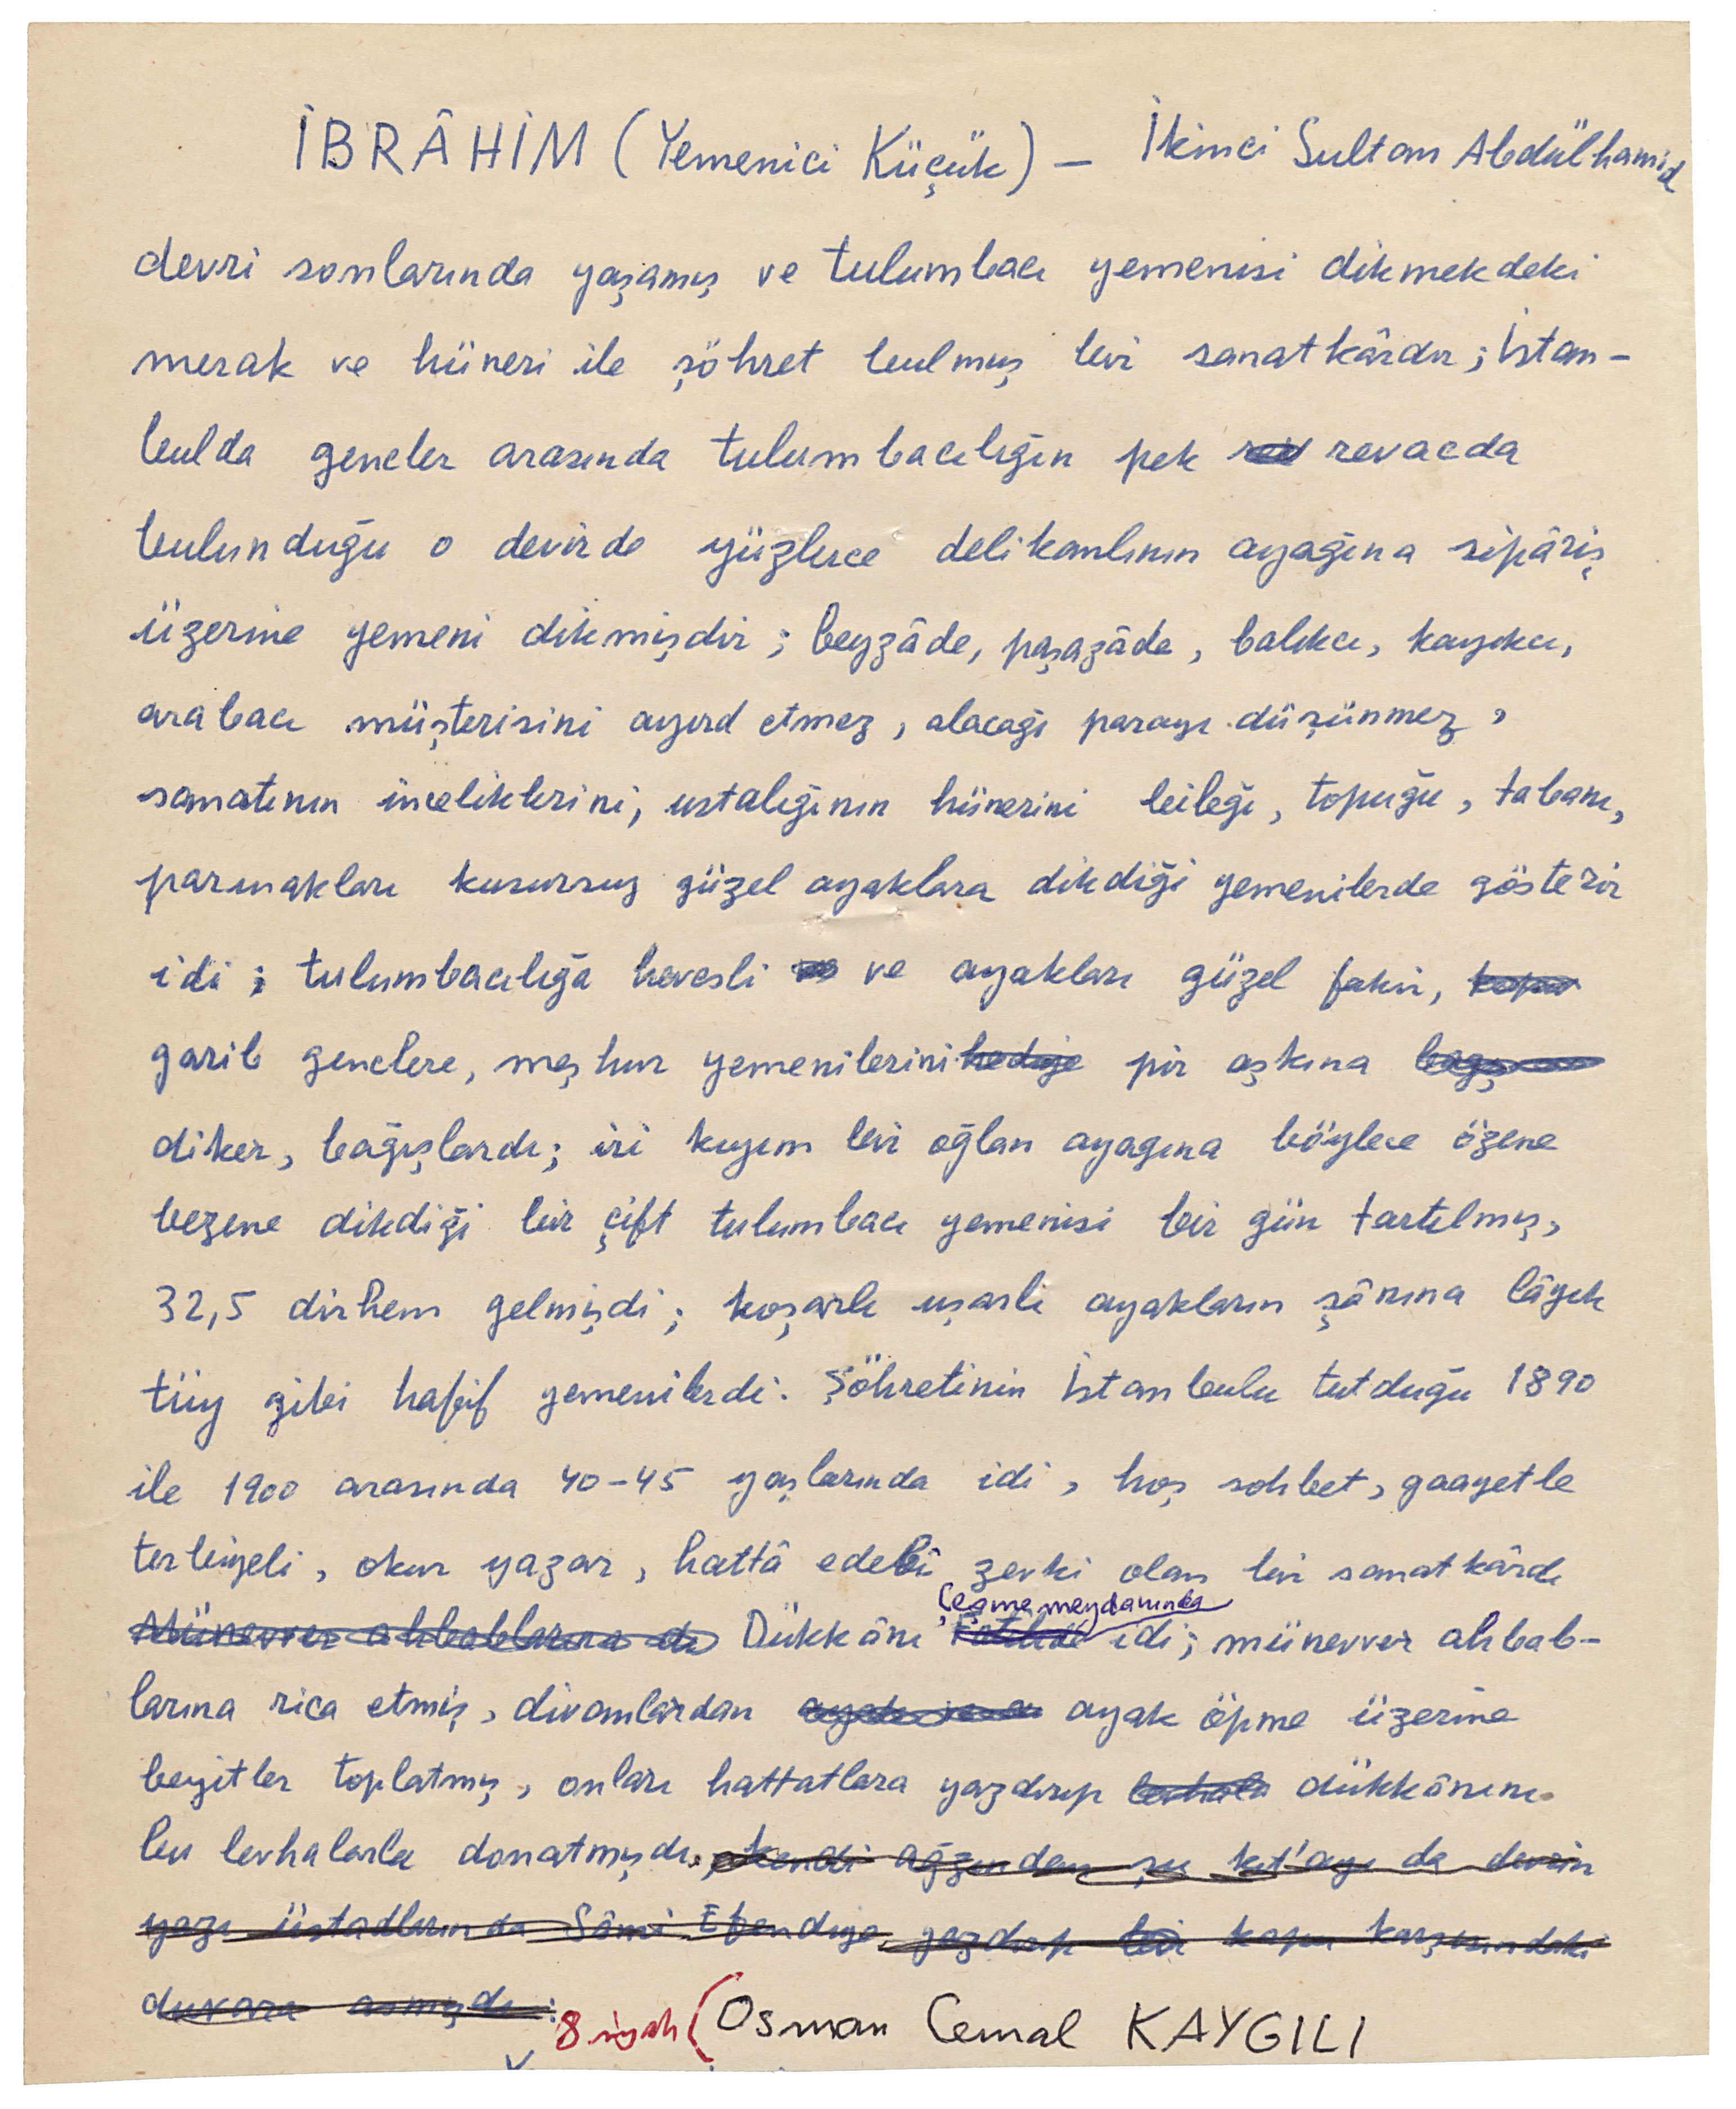 İBRÂHİM (Yemenici Küçük) — İkinci Sultan Abdülhamid
devri sonlarında yaşamış ve tulumbacı yemenisi dikmekdeki
merak ve hüneri ile şöhret bulmuş bir sanatkârdır; İstan-
bulda gencler arasında tulumbacılığın pek revacda
bulunduğu o devirde yüzlerce delikanlının ayağına sipâriş
üzerine yemeni dikmişdir; beyzâde, paşazâde, balıkcı, kayıkcı,
arabacı müşterisini ayırd etmez, alacağı parayı düşünmez,
sanatının inceliklerini, ustalığının hünerini bileği, topuğu, tabanı,
parmakları kusursuz güzel ayaklara dikdiği yemenilerde gösterir
idi; tulumbacılığa hevesli ve ayakları güzel fakir,
garib genclere, meşhur yemenilerini hediye pir aşkına
diker, bağışlardı; iri kıyım bir oğlan ayagına böylece özene
bezene dikdiği bir çift tulumbacı yemenisi bir gün tartılmış,
32,5 dirhem gelmişdi; koşarlı uşarlı ayakların şânına lâyık
tüy gibi hafif yemenilerdi. Şöhretinin İstanbulu tutduğu 1890
ile 1900 arasında 40-45 yaşlarında idi, hoş sohbet, gaayetle
terbiyeli, okur yazar, hattâ edebî zevki olan bir sanatkârdı
Çeşmemeydanında
Münevver ahbablarına da Dükkânı Fatihde idi; münevver ahbab-
larına rica etmiş, divanlardan ayak öpme üzerine
beyitler toplatmış, onları hattatlara yazdırıp levhala dükkânını
bu levhalarla donatmışdı, kendi ağzından şu kıt'ayı da devrin
yazı üstadlarında Sâmi Efendiye yazdırıp bir kapu karşısındaki
duvara asmışdı:
8 siyah (Osman Cemal KAYGILI